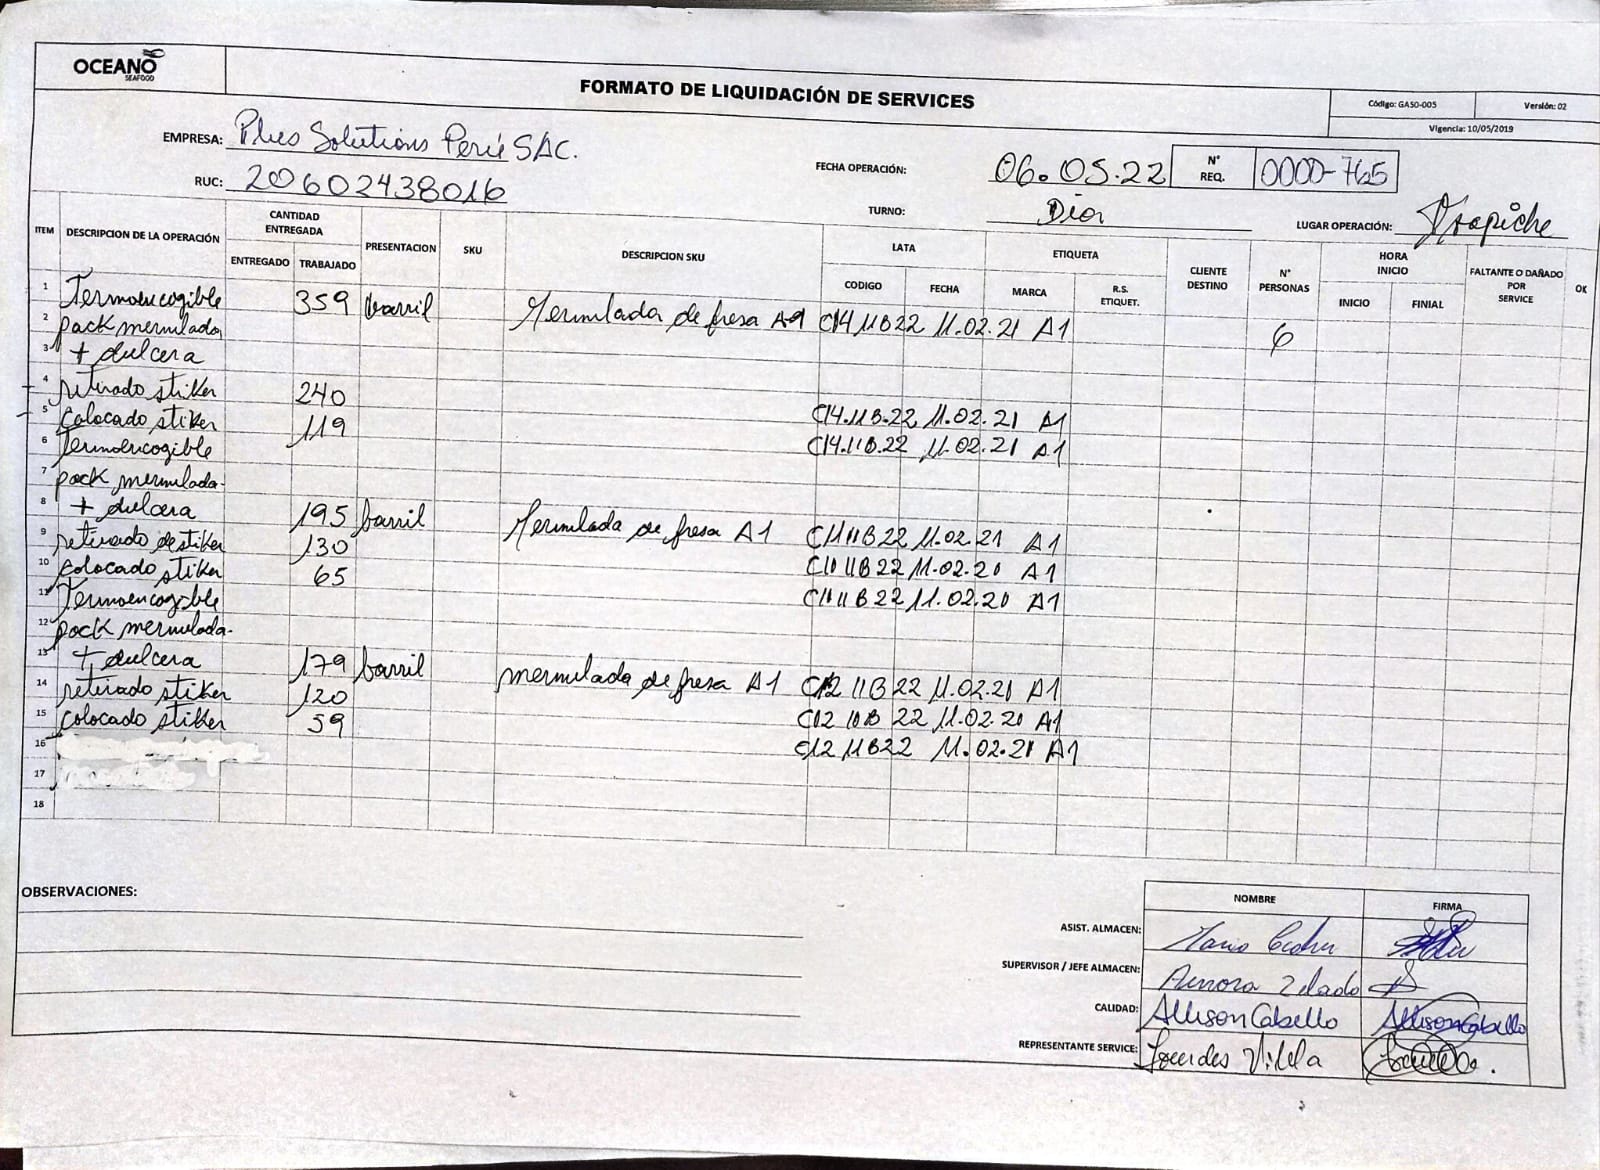 OCEANO
SEAFOOD
FORMATO DE LIQUIDACIÓN DE SERVICES
Código: GA50-005 Versión: 02
Vigencia: 10/05/2019
EMPRESA: Plus Solutions Perú SAC.
RUC: 20602438016
FECHA OPERACIÓN: 06.05.22 N° REQ. 0000-765
TURNO: Dia LUGAR OPERACIÓN: Trapiche
ITEM DESCRIPCION DE LA OPERACIÓN CANTIDAD ENTREGADA PRESENTACION SKU DESCRIPCION SKU LATA ETIQUETA CLIENTE DESTINO N° PERSONAS HORA INICIO FALTANTE O DAÑADO POR SERVICE OK
ENTREGADO TRABAJADO CODIGO FECHA MARCA R.S. ETIQUET. INICIO FINIAL
1 Termoencogible 359 barril Mermelada de fresa A1 C1411B22 11.02.21 A1 6
2 pack mermelada
3 + dulcera
4 retirado stiker 240 C14.11B.22 11.02.21 A1
5 colocado stiker 119 C14.11B.22 11.02.21 A1
6 Termoencogible
7 pack mermelada-
8 + dulcera 195 barril Mermelada de fresa A1 C1111B22 11.02.21 A1
9 retirado de stiker 130 C1011B22 11.02.20 A1
10 colocado stiker 65 C1111B22 11.02.20 A1
11 Termoencogible
12 pack mermelada-
13 + dulcera 179 barril mermelada de fresa A1 C1211B22 11.02.21 A1
14 retirado stiker 120 C1210B22 11.02.20 A1
15 colocado stiker 59 C1211B22 11.02.21 A1
16
17
18
OBSERVACIONES:
NOMBRE FIRMA
ASIST. ALMACEN: Mario
SUPERVISOR / JEFE ALMACEN: Aurora Zelado
CALIDAD: Allison Cabello Allison Cabello
REPRESENTANTE SERVICE: Lourdes Vilela